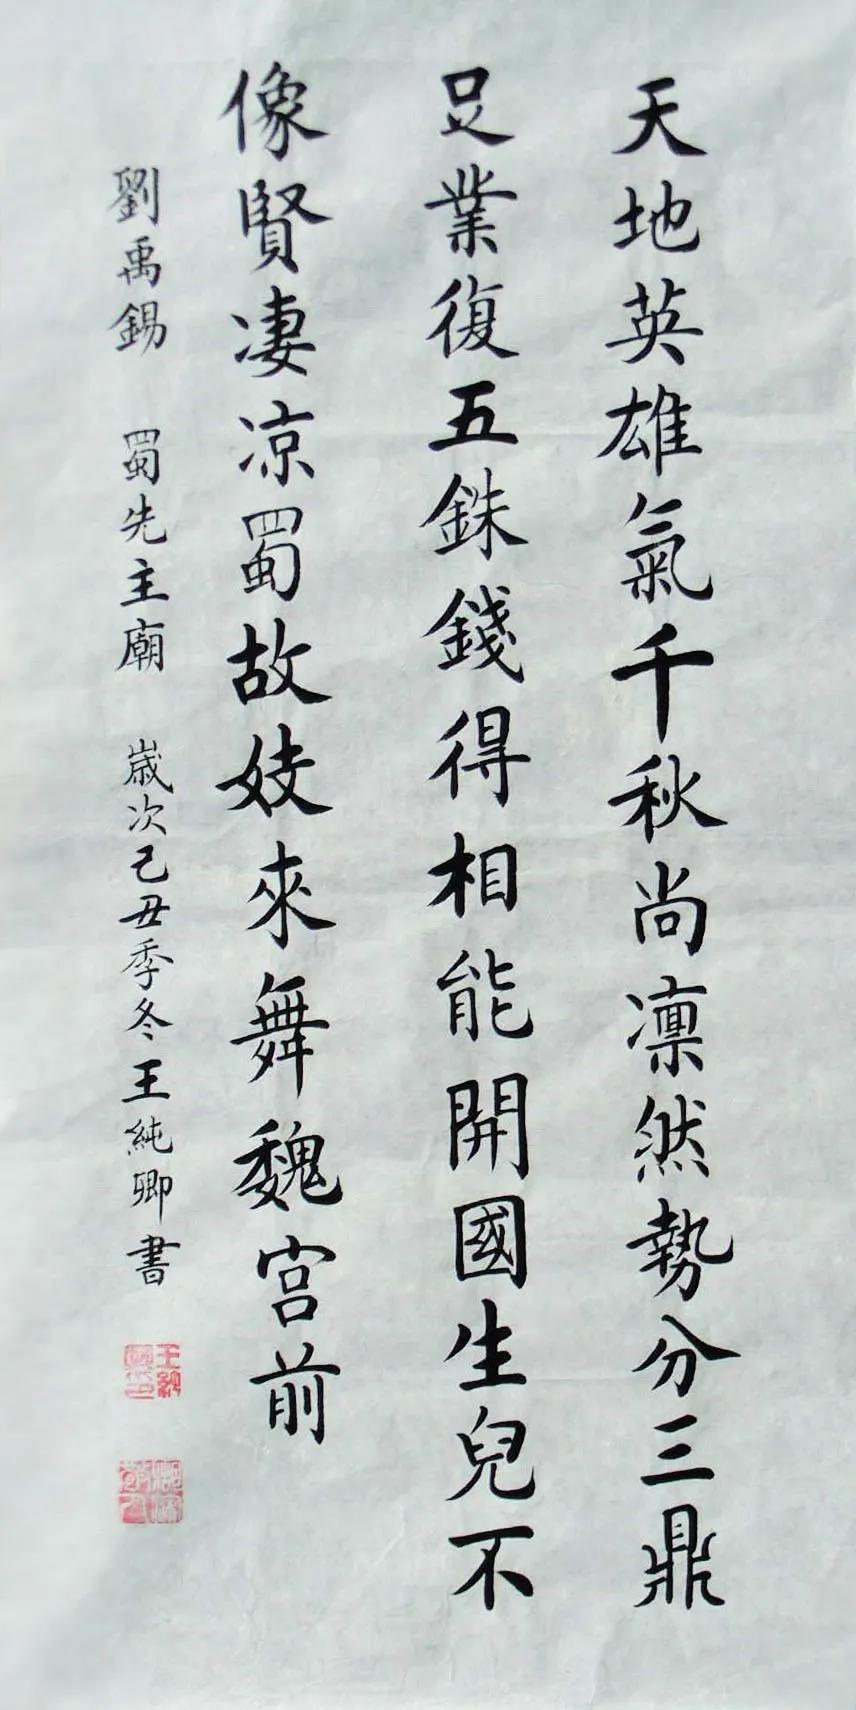 天地英雄氣千秋尚凛然勢分三鼎
足業復五銖錢得相能開國生兒不
像賢凄凉蜀故妓來舞魏宫前
劉禹錫 蜀先主廟 歲次己丑季冬王純卿書